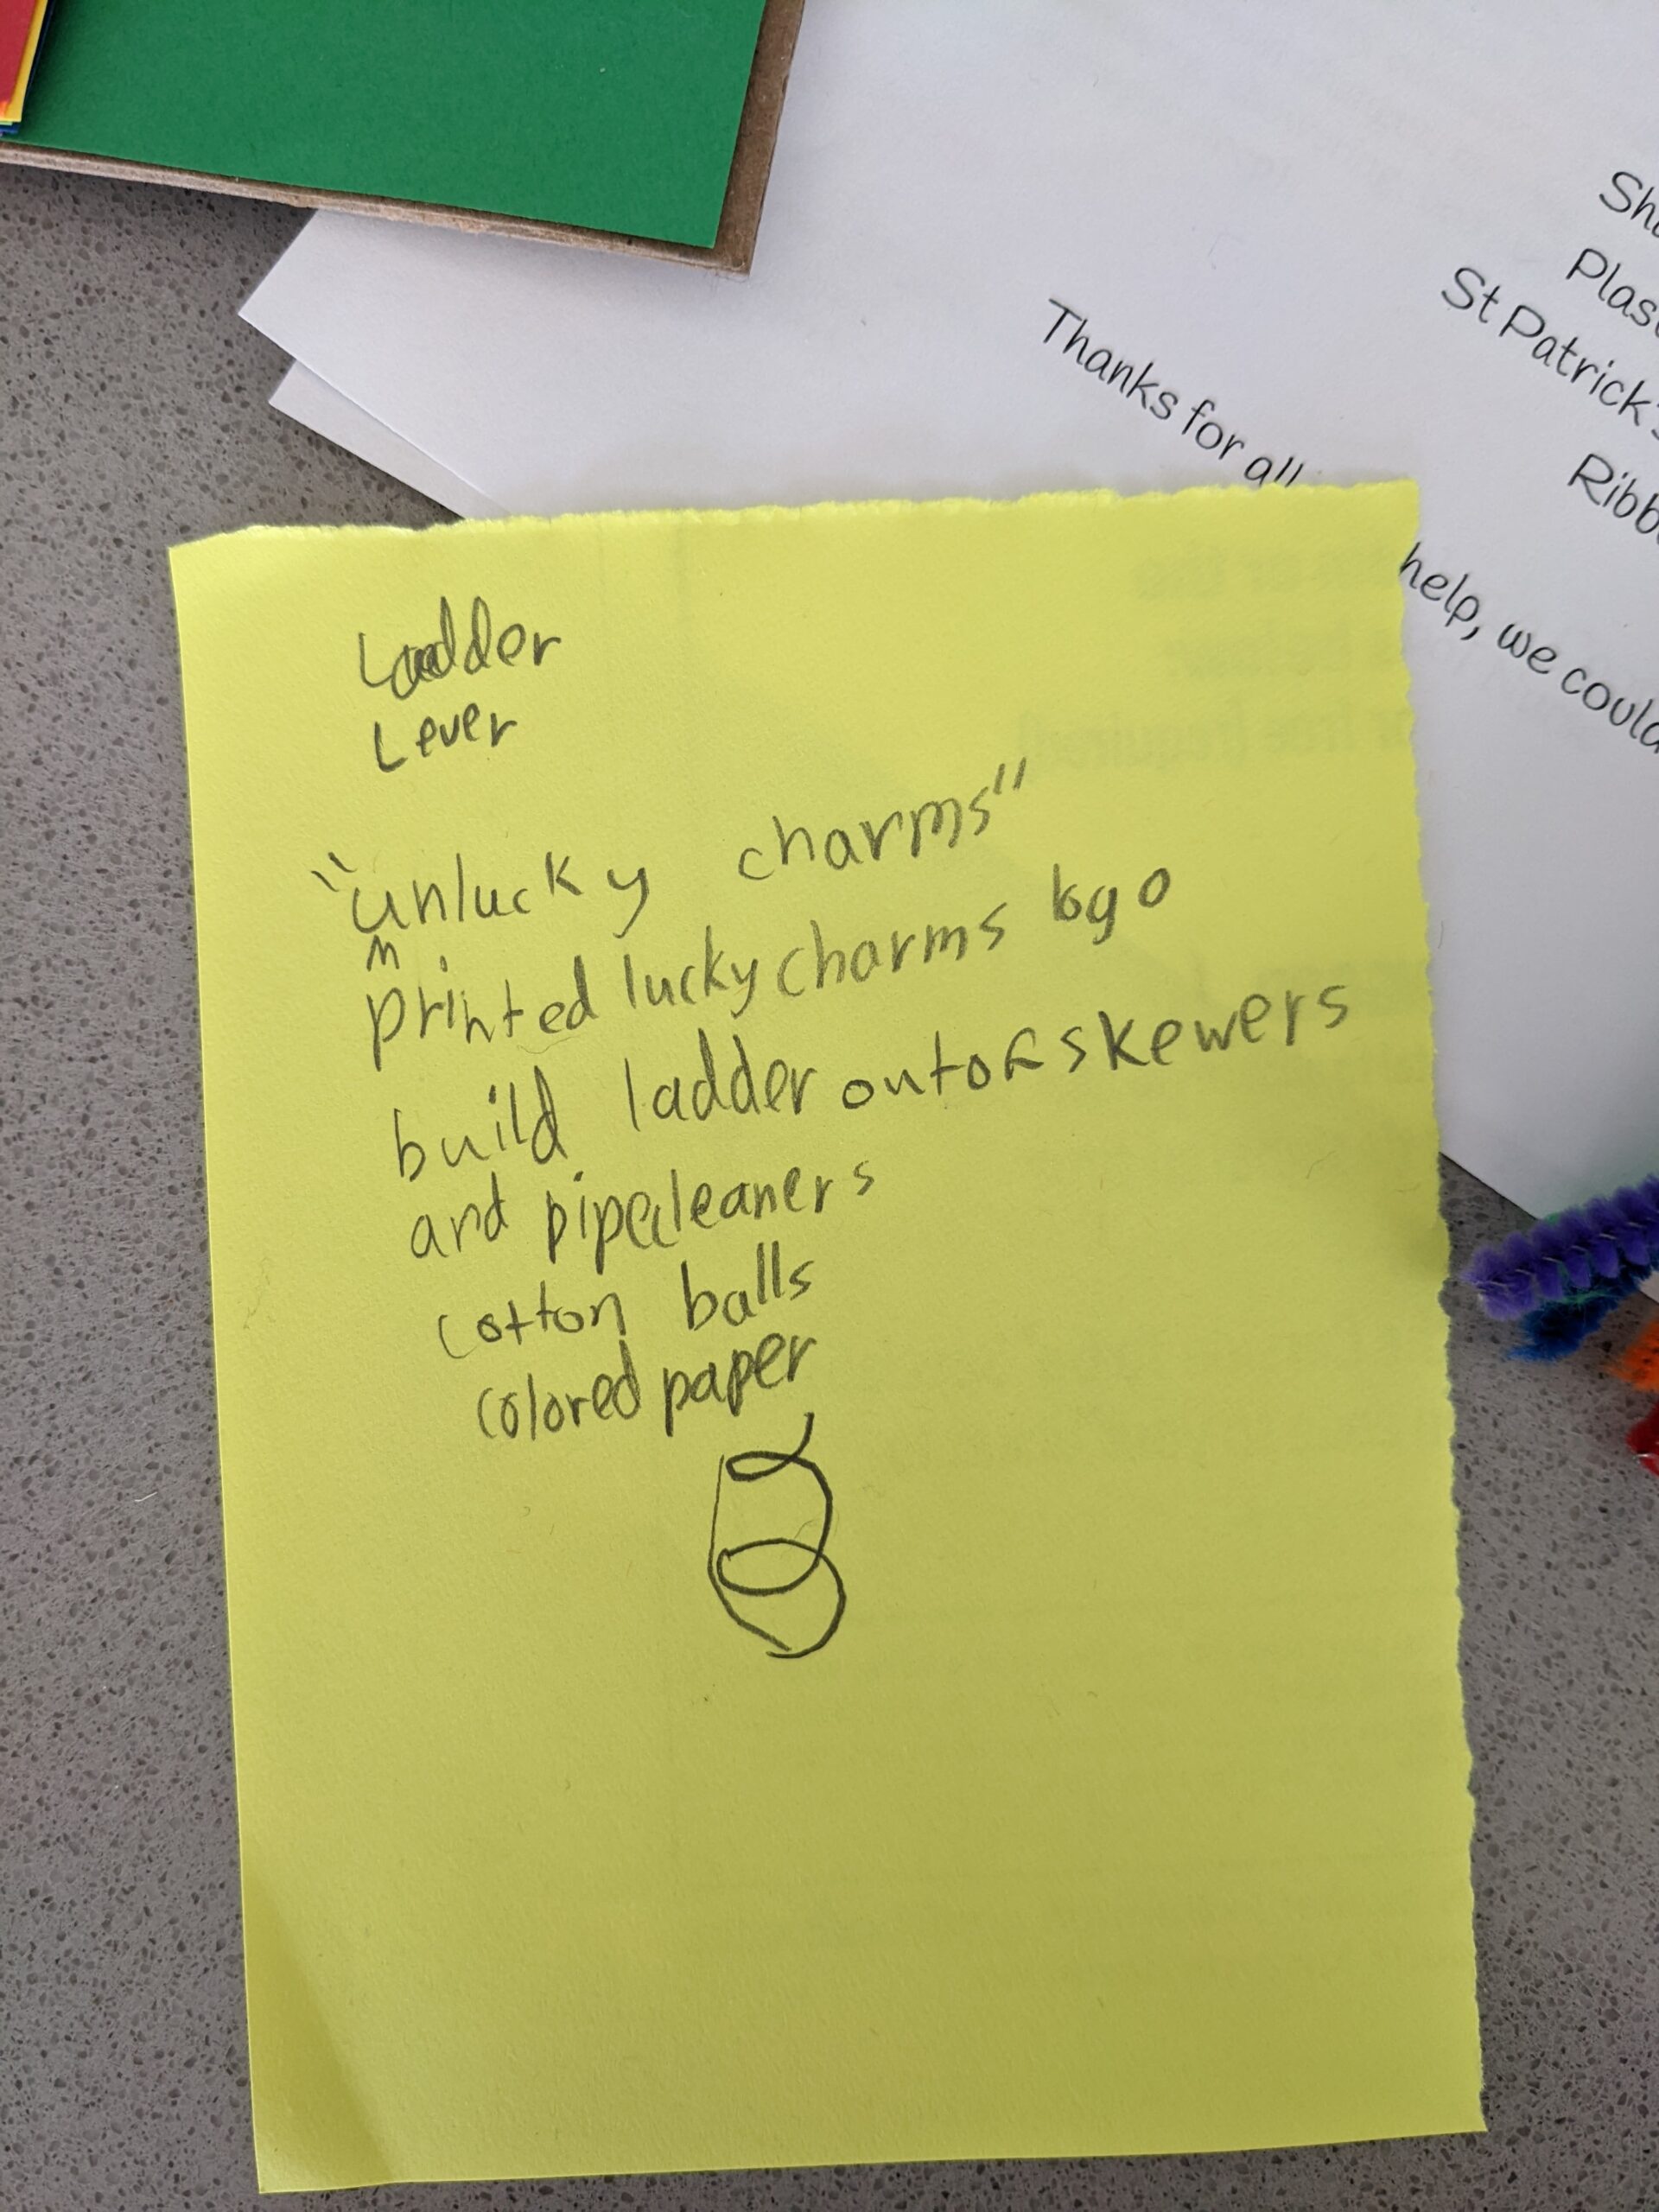 Sh
Plas
St Patrick's
Ribb
Thanks for all
help, we could
Ladder
Lever
"unlucky charms"
printed lucky charms logo
build ladder out of skewers
and pipecleaners
cotton balls
colored paper